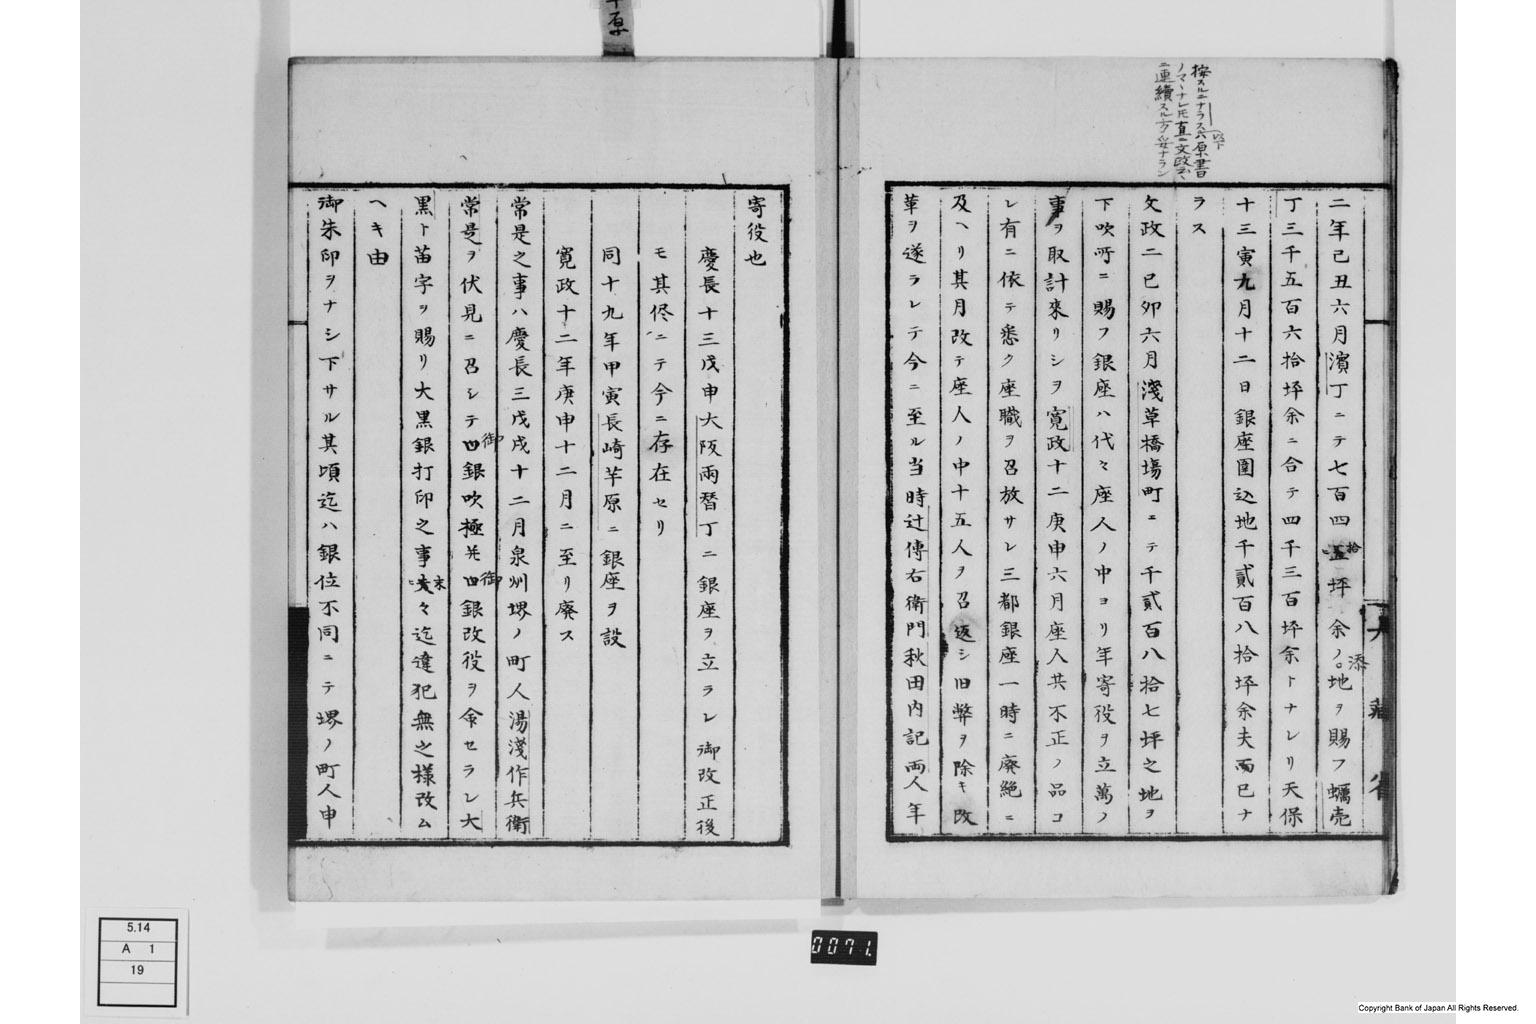 按スルニナラス六(以下)原書
ノマヽナレ𪜈直ニ文政云々
ニ連續スル方ヲ妥ナラン
二年己丑六月濱丁ニテ七百四拾坪余ノ添地ヲ賜フ蠣売
丁三千五百六拾坪余ニ合テ四千三百坪余トナレリ天保
十三寅九月十二日銀座圍込地千貳百八拾坪余夫而已ナ
ラス
文政二己卯六月淺草橋塲町ニテ千貳百八拾七坪之地ヲ
下吹所ニ賜フ銀座ハ代々座人ノ中ヨリ年寄役ヲ立萬ノ
事ヲ取計來リシヲ寛政十二庚申六月座人共不正ノ品コ
レ有ニ依テ悉ク座職ヲ召放サレ三都銀座一時ニ廢絶ニ
及ヘリ其月改テ座人ノ中十五人ヲ召返シ旧弊ヲ除キ改
革ヲ遂ラレテ今ニ至ル当時辻傳右衛門秋田内記両人年
大藏省
寄役也
慶長十三戊申大阪兩替丁ニ銀座ヲ立ラレ御改正後
モ其侭ニテ今ニ存在セリ
同十九年甲寅長崎芋原ニ銀座ヲ設
寛政十二年庚申十二月ニ至リ廢ス
常是之事ハ慶長三戊戌十二月泉州堺ノ町人湯淺作兵衛
常是ヲ伏見ニ召シテ御銀吹極并御銀改役ヲ命セラレ大
黒ト苗字ヲ賜リ大黒銀打印之事末々迄違犯無之様改ム
ヘキ由
御朱印ヲナシ下サル其頃迄ハ銀位不同ニテ堺ノ町人申
5.14
A 1
19
0071.
Copyright Bank of Japan All Rights Reserved.